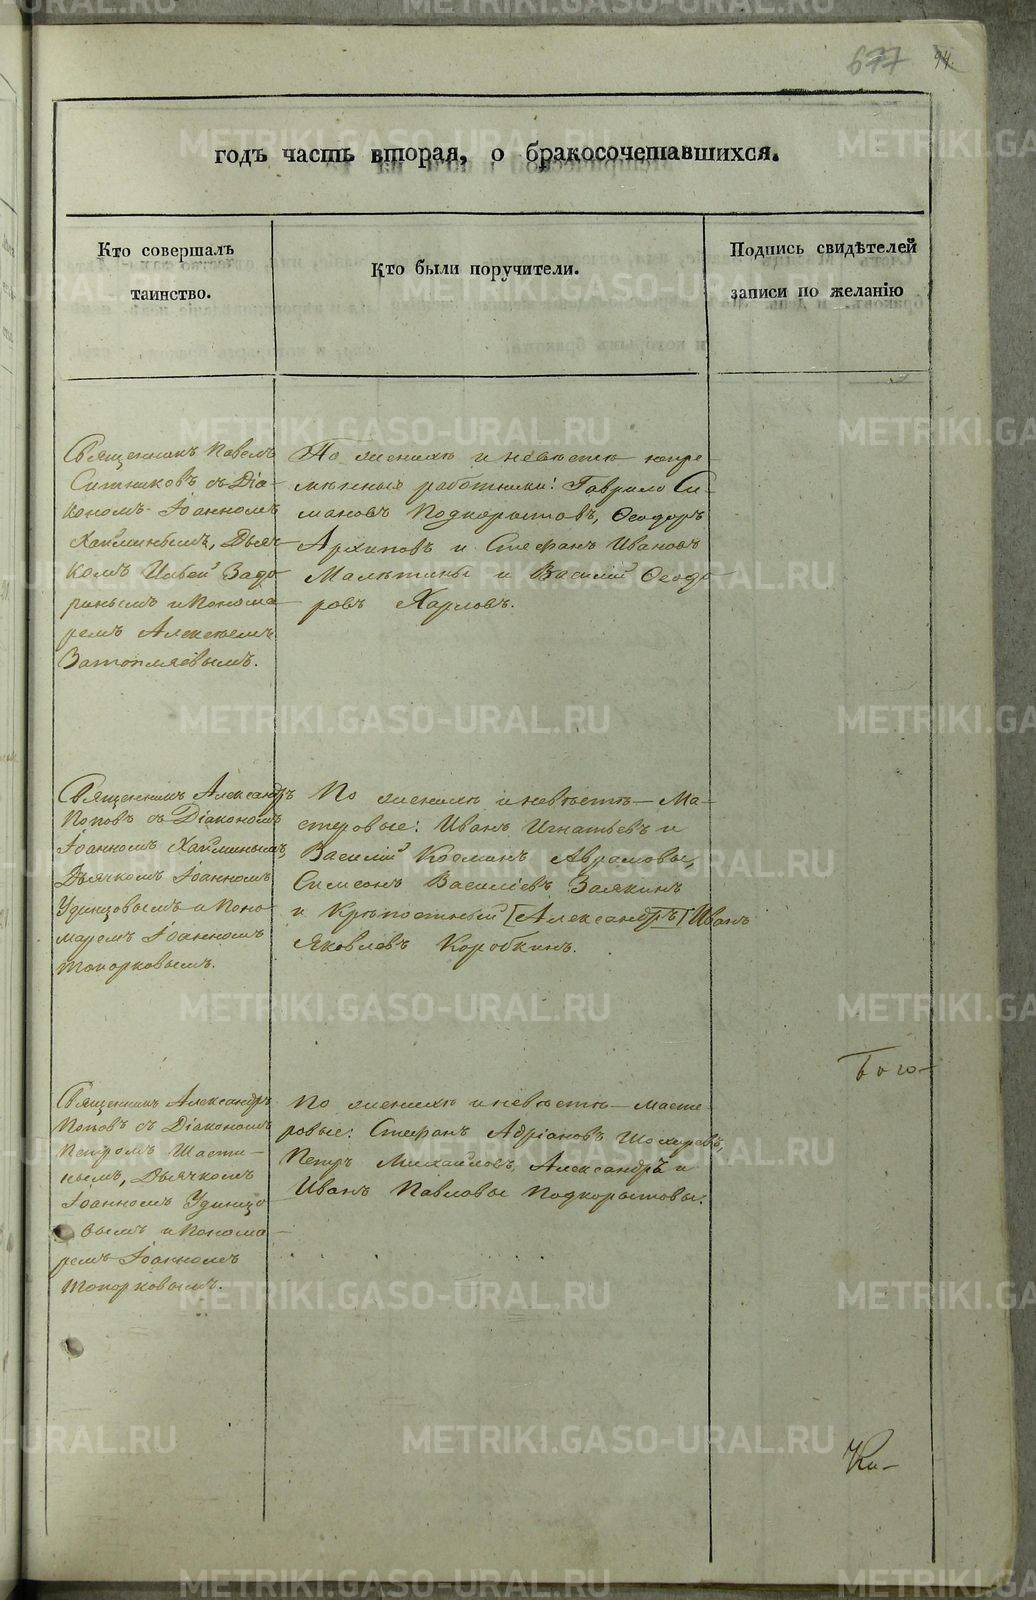 677 94.
годъ часть вторая, о бракосочетавшихся.
Кто совершалъ
таинство.
Кто были поручители.
Подпись свидѣтелей
записи по желанію
Священникъ Павелъ
Ситниковъ съ Діа-
кономъ Іоанномъ
Хайминымъ, Дьяч-
комъ Ильей Задо
ринымъ и Понома
ремъ Алексѣемъ
Затопляевымъ.
По женихѣ и невѣстѣ непре-
мѣнные работники: Гаврило Си-
мановъ Подкорытовъ, Ѳеодоръ
Архиповъ и Стефанъ Ивановъ
Малѣтины и Василій Ѳеодо
ровъ Харловъ.
Священникъ Александръ
Поповъ съ Діакономъ
Іоанномъ Хайминымъ,
Дьячкомъ Іоанномъ
Удинцовымъ и Поно
маремъ Іоанномъ
Топорковымъ.
По женихѣ и невѣстѣ – Ма-
стеровые: Иванъ Игнатьевъ и
Василій Козминъ Аврамовы,
Симеонъ Василіевъ Заякинъ
и Крѣпостный [Александръ] Иванъ
Яковлевъ Коробкинъ.
Бого-
Священникъ Александръ
Поповъ съ Діакономъ
Петромъ Шасти-
нымъ, Дьячкомъ
Іоанномъ Удинцо
вымъ и Понома-
ремъ Іоанномъ
Топорковымъ.
По женихѣ и невѣстѣ – масте-
ровые: Стефанъ Адріановъ Шохиревъ,
Петръ Михайловъ, Александръ и
Иванъ Павловы Подкорытовы.
Ки-
METRIKI.GASO-URAL.RU